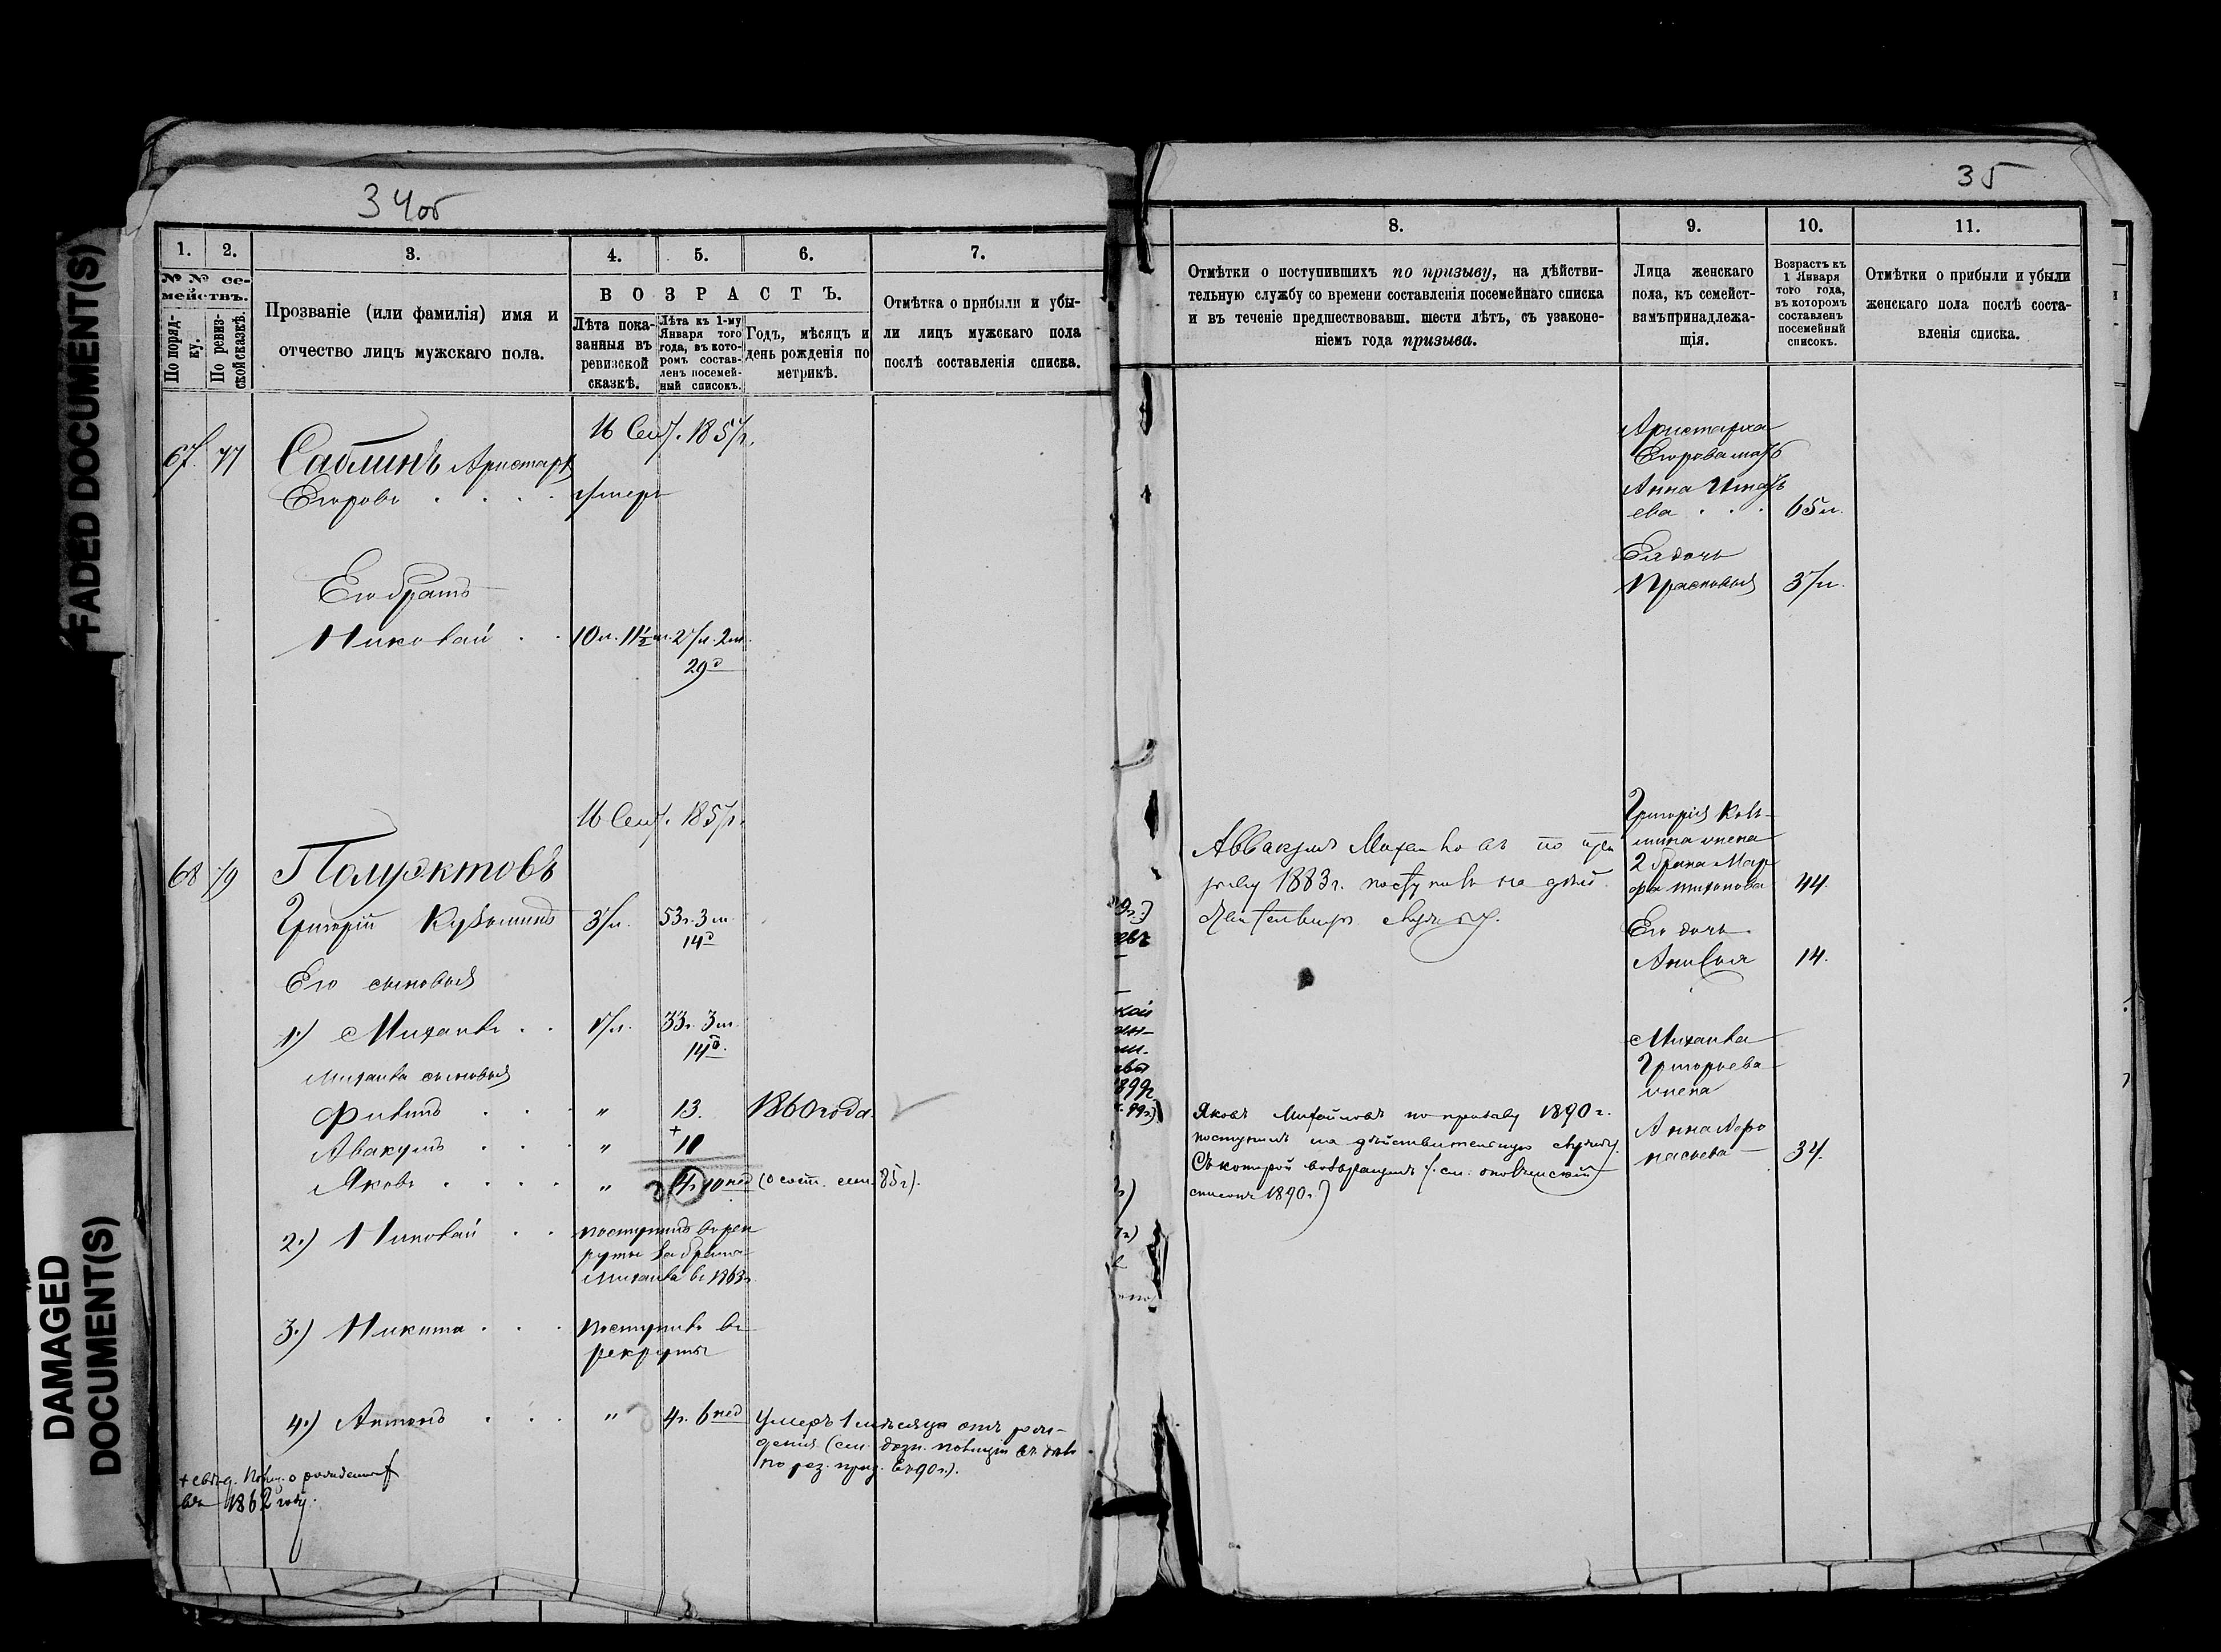 FADED DOCUMENT(S)
DAMAGED
DOCUMENT(S)
34об
1.
2.
3.
4.
5.
6.
7.
№ № се-
мействъ.
По поряд-
ку.
По ревиз-
ской сказкѣ.
Прозваніе (или фамилія) имя и
отчество лицъ мужскаго пола.
ВОЗРАСТЪ.
Лѣта пока-
занныя въ
ревизской
сказкѣ.
Лѣта къ 1-му
Января того
года, въ кото-
ромъ состав-
ленъ посемей-
ный списокъ.
Годъ, мѣсяцъ и
день рожденія по
метрикѣ.
Отмѣтка о прибыли и убы-
ли лицъ мужскаго пола
послѣ составленія списка.
16 Сент. 1857г.
67. 77 Саблинъ Аристархъ
Егоровъ . . . . умеръ
Его братъ
Николай . . 10л. 11½м. 27л. 2м.
29д
16 Сент. 1857г.
68 79 Полуэктовъ
Григорій Кузьминъ 37л. 53г. 3м.
14д
Его сыновья
1.) Михаилъ . . 17л. 33г. 3м.
14д.
Михаила сыновья
Филипъ . . . " 13. 1860 года.
Авакумъ . . . " + 11
Яковъ . . . . " 4г. 10нед (о сост. сем. 85г).
2.) Николай . . поступилъ въ рек
руты за брата
Михаила въ 1863г.
3.) Никита . . . Поступилъ въ
рекруты
4.) Антонъ . . . " 4г. 6нед Умеръ 1 мѣсяца отъ рож-
денія (см. дозн. полиціи въ дѣлѣ
по рез. приз. 1890г.).
+ свѣд. Полиц. о рожденіи
въ 1862 году.
35
8.
9.
10.
11.
Отмѣтки о поступившихъ по призыву, на дѣйстви-
тельную службу со времени составленія посемейнаго списка
и въ теченіе предшествовавш. шести лѣтъ, съ узаконе-
ніемъ года призыва.
Лица женскаго
пола, къ семейст-
вамъ принадлежа-
щія.
Возрастъ къ
1 Января
того года,
въ которомъ
составленъ
посемейный
списокъ.
Отмѣтки о прибыли и убыли
женскаго пола послѣ соста-
вленія списка.
Аристарха
Егорова мать
Анна Игнать
ева . . . 65л.
Ея дочь
Прасковья 37л.
Аввакумъ Михайловъ по при
зыву 1883г. поступилъ на дѣй.
ствительную службу.
Григорія Кузь-
мина жена
2 брака Мар
фа Тихонова 44.
Его дочь
Анисья 14.
Михаила
Григорьева
жена
Анна Афо
насьева 34.
Яковъ Михайловъ по призыву 1890г.
поступилъ на дѣйствительную службу.
Съ которой возвращенъ (см.
списокъ 1890г.)